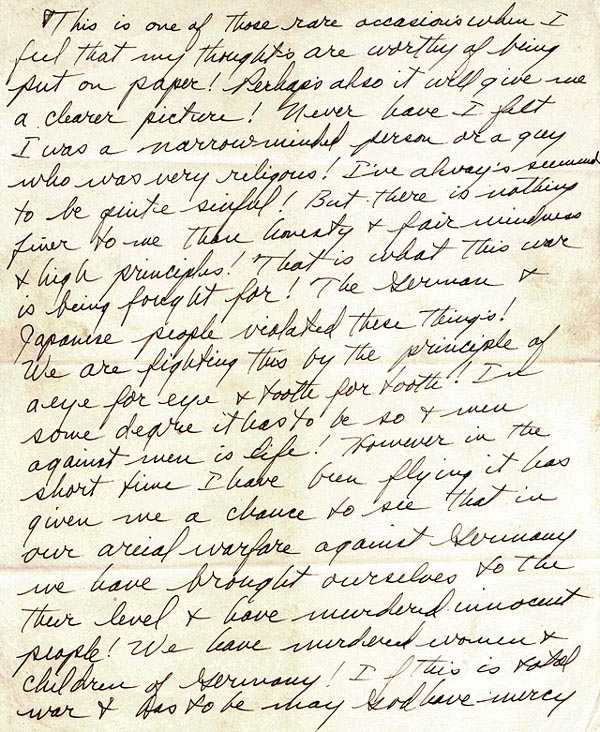 This is one of those rare occasions when I
feel that my thought's are worthy of being
put on paper! Perhaps also it will give me
a clearer picture! Never have I felt
I was a narrowminded person or a guy
who was very religous! I've always seemed
to be quite sinful! But there is nothing
finer to me than honesty & fair mindness
& high principles! That is what this war
is being fought for! The German &
Japanese people violated these thing's!
We are fighting this by the principle of
a eye for eye & tooth for tooth! In
some degree it has to be so & men
against men is life! However in the
short time I have been flying it has
given me a chance to see that in
our areial warfare against Germany
we have brought ourselves to the
their level & have murdered innocent
people! We have murdered women &
children of Germany! If this is total
war & has to be may God have mercy